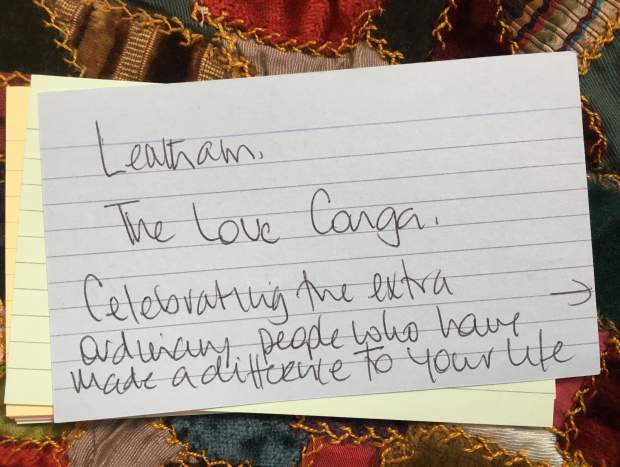 Leatham.
The Love Conga.
Celebrating the extra →
ordinary people who have
made a difference to your life